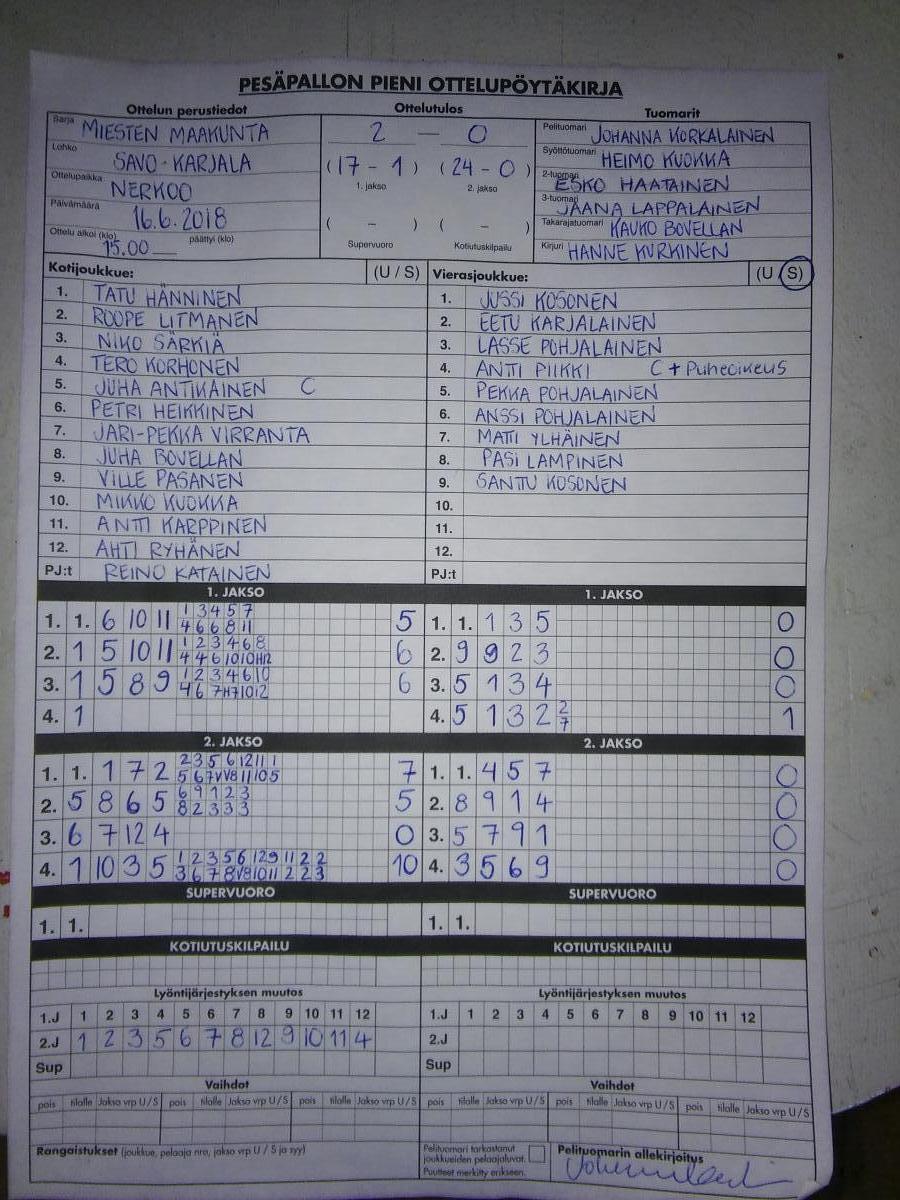 PESÄPALLON PIENI OTTELUPÖYTÄKIRJA
Ottelun perustiedot Ottelutulos Tuomarit
Sarja MIESTEN MAAKUNTA 2 – 0 Pelituomari JOHANNA KORKALAINEN
Lohko SAVO-KARJALA (17 - 1) (24 - 0) Syöttötuomari HEIMO KUOKKA
1. jakso 2. jakso
Ottelupaikka NERKOO 2-tuomari ESKO HAATAINEN
Päivämäärä 16.6.2018 3-tuomari JAANA LAPPALAINEN
( – ) ( – ) Takarajatuomari KAUKO BOVELLAN
Ottelu alkoi (klo) 15.00 päättyi (klo) Supervuoro Kotiutuskilpailu Kirjuri HANNE KURKINEN
Kotijoukkue: (U / S) Vierasjoukkue: (U / S)
1. TATU HÄNNINEN 1. JUSSI KOSONEN
2. ROOPE LITMANEN 2. EETU KARJALAINEN
3. NIKO SÄRKIÄ 3. LASSE POHJALAINEN
4. TERO KORHONEN 4. ANTTI PIIKKI C + Puheoikeus
5. JUHA ANTIKAINEN C 5. PEKKA POHJALAINEN
6. PETRI HEIKKINEN 6. ANSSI POHJALAINEN
7. JARI-PEKKA VIRRANTA 7. MATTI YLHÄINEN
8. JUHA BOVELLAN 8. PASI LAMPINEN
9. VILLE PASANEN 9. SANTTU KOSONEN
10. MIKKO KUOKKA 10.
11. ANTTI KARPPINEN 11.
12. AHTI RYHÄNEN 12.
PJ:t REINO KATAINEN PJ:t
1. JAKSO 1. JAKSO
1. 1. 6 10 11 1 3 4 5 7 5 1. 1. 1 3 5 0
4 6 6 8 11
2. 1 5 10 11 1 2 3 4 6 8 6 2. 9 9 2 3 0
4 4 6 10 10 H12
3. 1 5 8 9 1 2 3 4 6 10 6 3. 5 1 3 4 0
4 6 7 H7 10 12
4. 1 4. 5 1 3 2 2 1
7
2. JAKSO 2. JAKSO
1. 1. 1 7 2 2 3 5 6 12 11 1 7 1. 1. 4 5 7 0
5 6 7 VV8 11 10 5
2. 5 8 6 5 6 9 1 2 3 5 2. 8 9 1 4 0
8 2 3 3 3
3. 6 7 12 4 0 3. 5 7 9 1 0
4. 1 10 3 5 1 2 3 5 6 12 9 11 2 2 10 4. 3 5 6 9 0
3 6 7 8 V8 10 11 2 2 3
SUPERVUORO SUPERVUORO
1. 1. 1. 1.
KOTIUTUSKILPAILU KOTIUTUSKILPAILU
Lyöntijärjestyksen muutos Lyöntijärjestyksen muutos
1.J 1 2 3 4 5 6 7 8 9 10 11 12 1.J 1 2 3 4 5 6 7 8 9 10 11 12
2.J 1 2 3 5 6 7 8 12 9 10 11 4 2.J
Sup Sup
Vaihdot Vaihdot
pois tilalle Jakso vrp U / S pois tilalle Jakso vrp U / S pois tilalle Jakso vrp U / S pois tilalle Jakso vrp U / S pois tilalle Jakso vrp U / S pois tilalle Jakso vrp U / S
Rangaistukset (joukkue, pelaaja nro, jakso vrp U / S ja syy) Pelituomari tarkastanut Pelituomarin allekirjoitus
joukkueiden pelaajaluvat.
Puutteet merkitty erikseen.